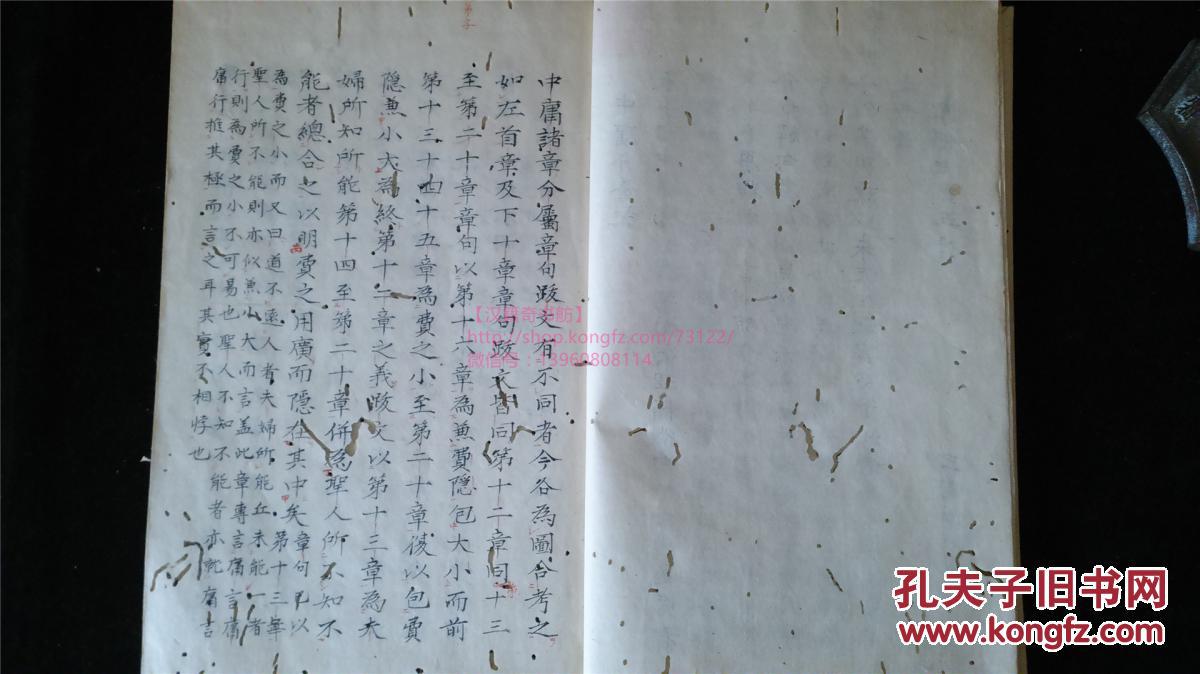 中庸諸章分屬章句跋文有不同者今各為圖合考之
如左首章及下十章章句跋文皆同第十二章同十三
至第二十章章句以第十六章為兼費隱包大小而前
第十三十四十五章為費之小至第二十章後以包費
隱兼小大為終第十二章之義跋文以第十三章為夫
婦所知所能第十四至第二十章併為聖人所不知不
能者總合之以明費之用廣而隱在其中矣章句又以
為費之小而又曰道不遠人者夫婦所能丘未能一者
聖人所不能則亦似兼小大而言盖此章專言庸言庸
行則為費之小不可易也聖人不知不能者亦就庸言
庸行推其極而言之耳其實不相悖也
第十三章
弟子
【汉籍奇书舫】
http://shop.kongfz.com/73122/
微信号：13960808114
孔夫子旧书网
www.kongfz.com